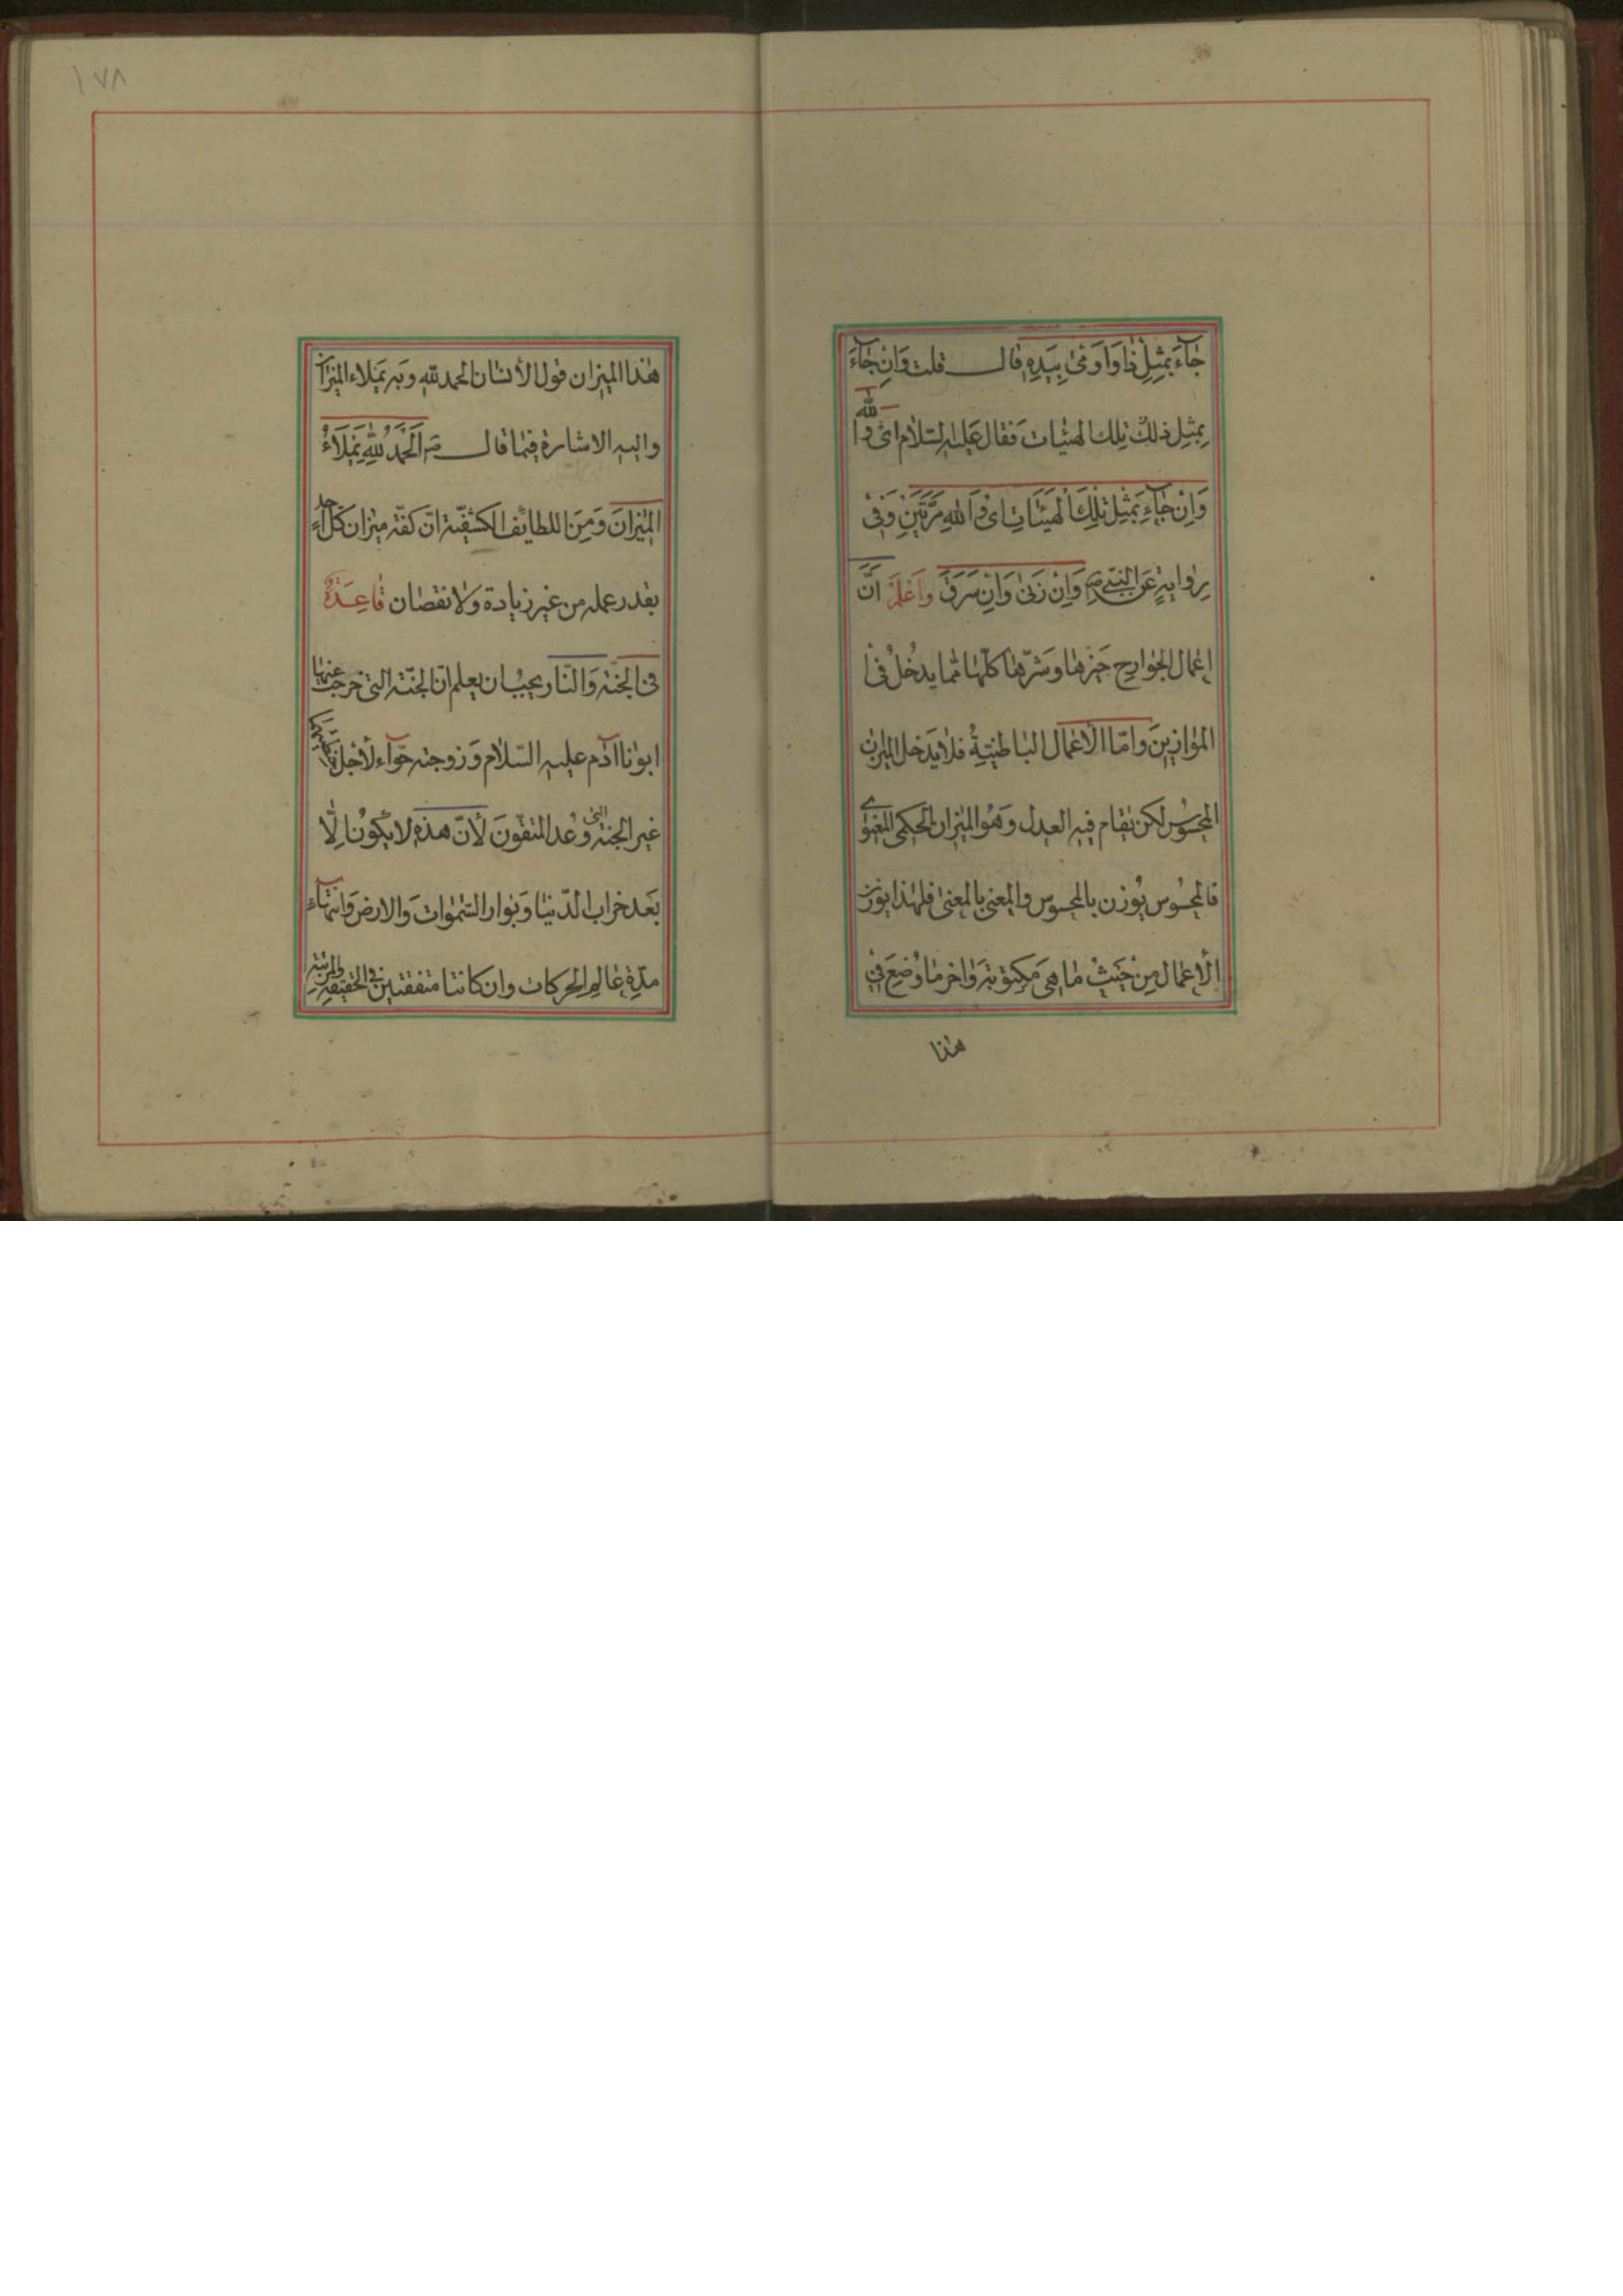 جٰآءَ بمِثِلِ ذا وَاَوَمئ بِيَدِهِ قال قلت وَاِن جٰآءَ
بِمثِلِ ذلِكَ تِلك الهيئات فقال عَليهِ السّلام اى وَالله
وَاِنْ جٰآءَ بَمثِلِ تِلكَ اْلهَيَئَاتِ اىْ وَاللهِ مَرَّتَيَنِ وَفى
رِوايةٍ عَنِ النّبىّ ص وَاِنْ زَنىٰ وَاِنْ سَرَقَ وَاَعْلَمْ اَنَّ
اعمال الجوارح خيرهٰا وَشَرّهٰا كلّهٰا ممّا يدخُلُ فى
الموٰازينَ وامّا الاعمال البٰاطنيّةُ فلا يَدخل الميزٰان
المحسُوس لكن يقٰام فيهِ العدل وَهُو الميزٰان الحكمى المعنوى
فالمحسُوس يُوزن بالمحسوس والمعنى بالمعنىٰ فلهٰذا يوزن
الأعمٰال مِنْ حَيَثْ مٰا هِىَ مكتوبة وَاٰخر مٰا وُضِعَ فى
هٰذا
١٧٨
هٰذا الميزان قول الأنسان الحمد للهِ وَبهِ يَملاء الميزٰان
واليهِ الاشارة فيمٰا قال ص اَلَحْمَدُ للهِِ يَمَلَاءُ
الميزانَ وَمِنَ اللطايف الكشفيّة انّ كفّة ميزان كلّ احدٍ
بقدر عمله من غير زيادة وَلا نقصٰان قٰاعِدَةٌ
فى الجنّة وَالنّار يجبُ ان يعلم انّ الجنّة التى خرجت عنهٰا
ابونٰا اٰدم عليهِ السّلام وَزوجته حوّاء لأجل خطيئتهما
غير الجنة التى وُعد المتقونَ لأنّ هذِهِ لا يكونُ اِلّا
بَعَد خراب الدّنيٰا وَبوار السّمٰوات وَالارض وَانتهٰاءِ
مدّةِ عٰالمِ الحركات وان كانتا متفقتين فى الحقيقة والمرتبةِ